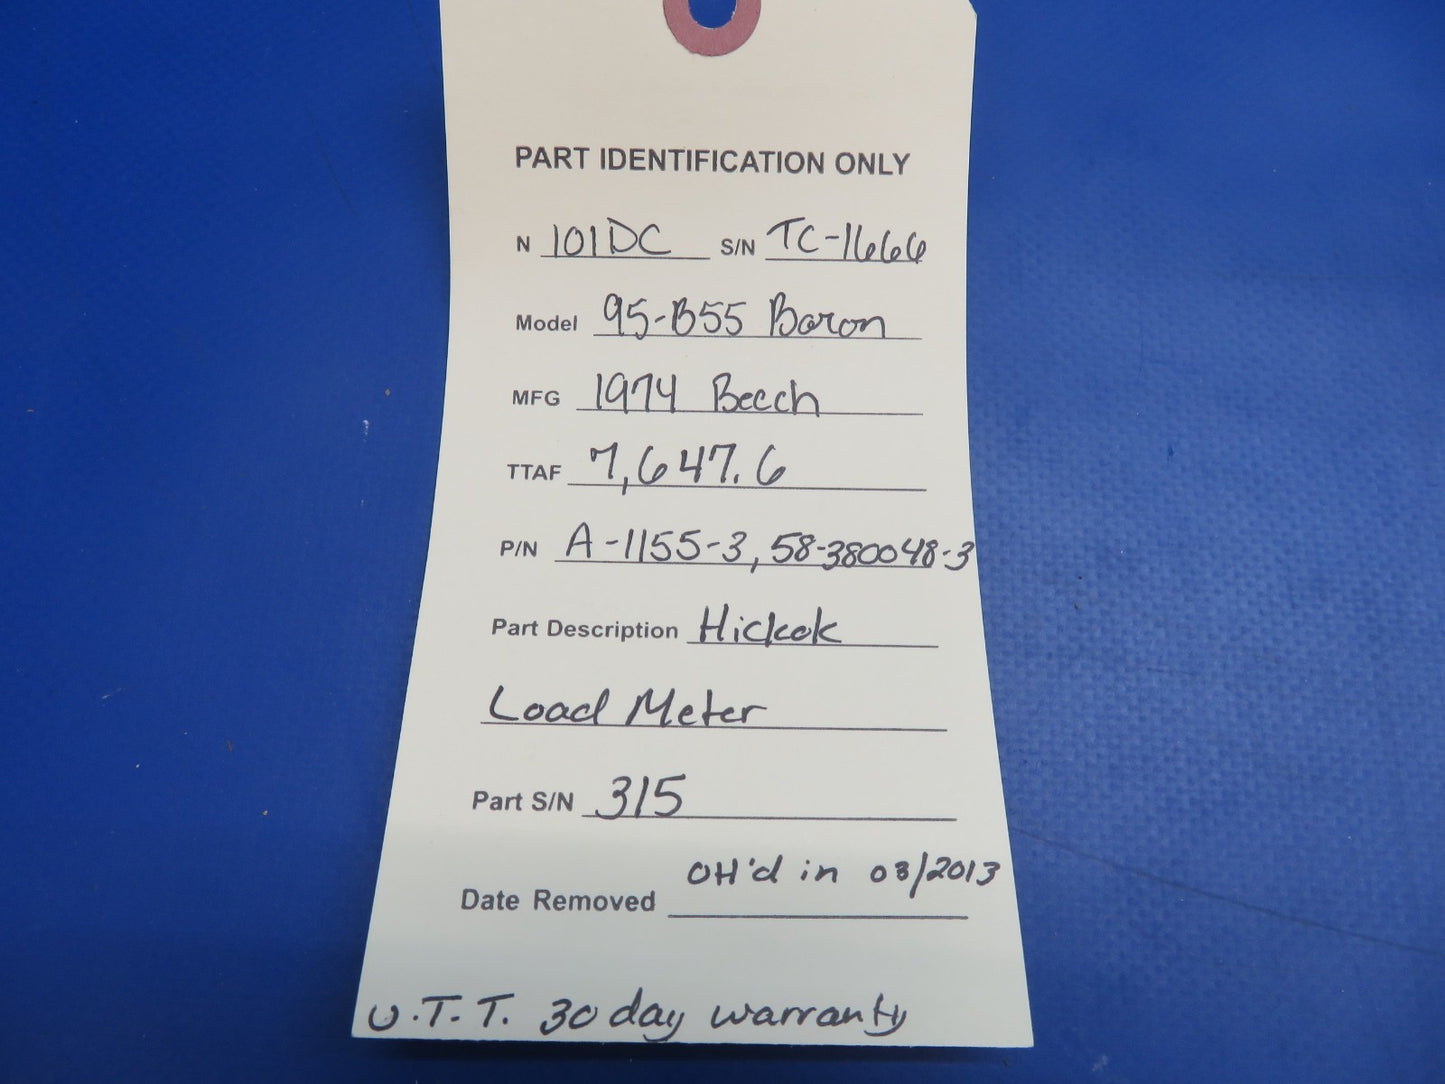 PART IDENTIFICATION ONLY
N 101DC S/N TC-1666
Model 95-B55 Baron
MFG 1974 Beech
TTAF 7,647.6
P/N A-1155-3, 58-380048-3
Part Description Hickok
Load Meter
Part S/N 315
OH'd in 03/2013
Date Removed
U.T.T. 30 day warranty